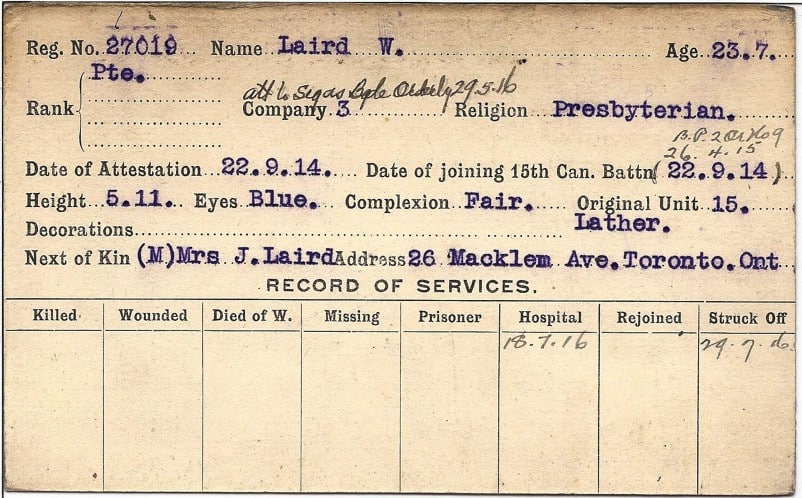 Reg. No. 27019 Name Laird W. Age 23.7.
Pte.
att to Bgde Orderly 29.5.16
Rank Company 3 Religion Presbyterian.
B.P. 2
26.4.15
Date of Attestation 22.9.14. Date of joining 15th Can. Battn (22.9.14)
Height 5.11. Eyes Blue. Complexion Fair. Original Unit 15.
Decorations Lather.
Next of Kin (M)Mrs J.Laird Address 26 Macklem Ave.Toronto.Ont
RECORD OF SERVICES.
Killed Wounded Died of W. Missing Prisoner Hospital Rejoined Struck Off
18.7.16 29.7.16